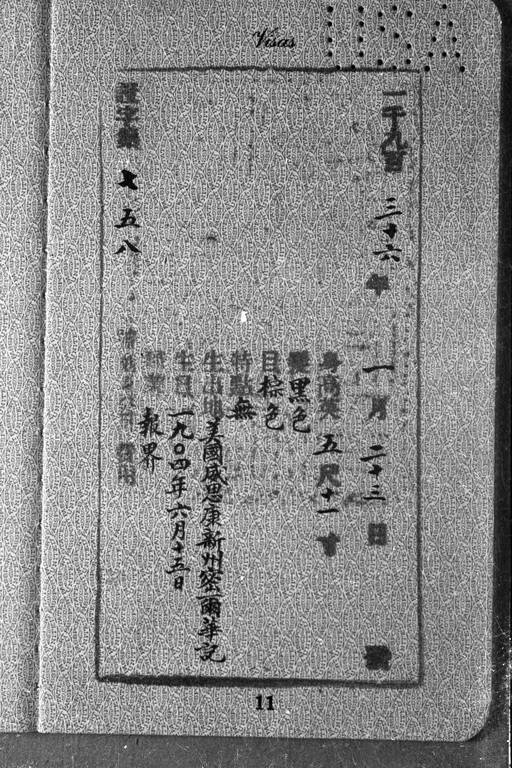 Visas
USA
一千九百三十六年一月二十三日發
身高英五尺十一寸
髮黑色
目棕色
特點無
生出地美國威思康新州密爾華記
生日一九〇四年六月十五日
職業報界
字第七五八
11